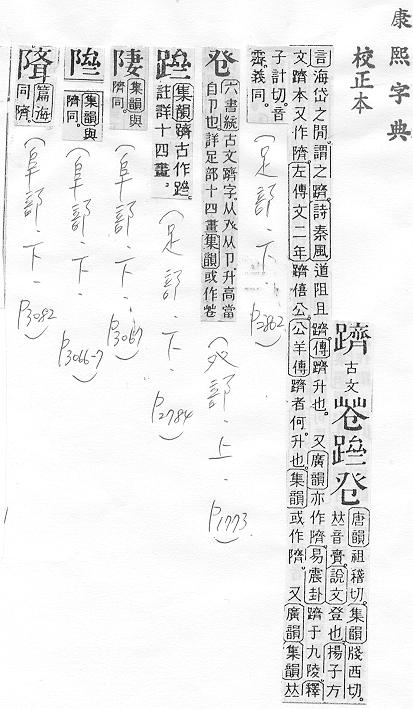 康熙字典
校正本
躋
古文
唐韻祖稽切。集韻牋西切。
𠀤音齎。說文登也。揚子方
言海岱之閒謂之躋。詩秦風道阻且躋。傳躋升也。又廣韻亦作隮。易震卦躋于九陵。釋
文躋本又作隮。左傳文二年躋僖公。公羊傳躋者何升也。集韻或作隮。又廣韻集韻𠀤
子計切。音
霽。義同。
(足部·下·P2862)
六書統古文躋字。从癶从卩升高當
自卩也詳足部十四畫集韻或作
(癶部·上·P1773)
集韻躋古作
註詳十四畫。
(足部·下·P2784)
集韻與
隮同。
(阜部·下·P3067)
集韻與
隮同。
(阜部·下·P3066-7)
篇海
同隮。
(阜部·下·P3082)